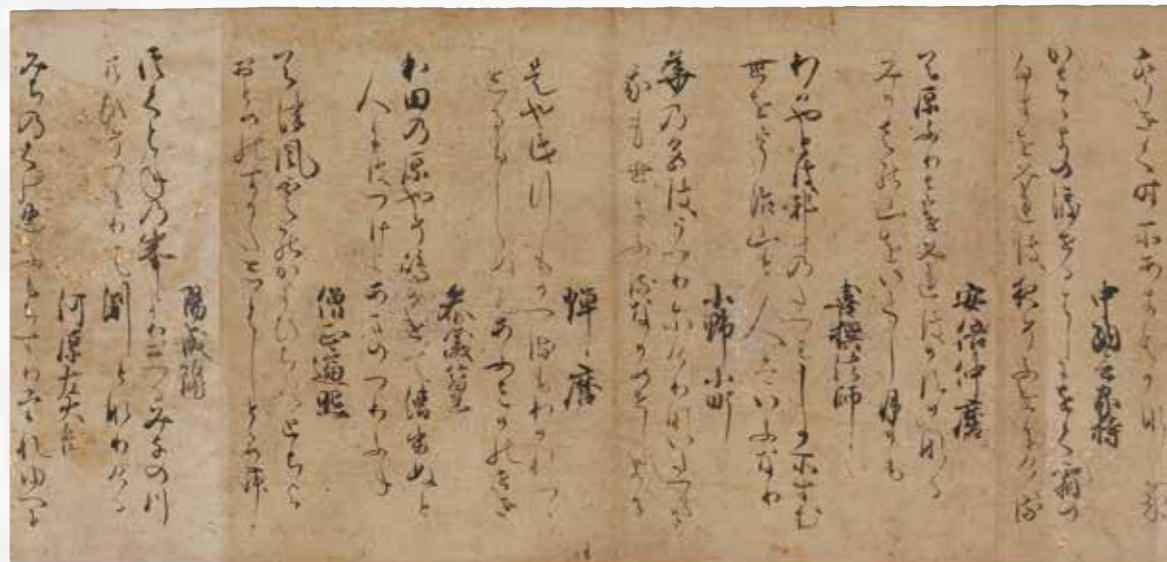 こゑきく時そあきはかなしき
中納言家持
かさゝきの渡せるはしにをく霜の
しろきをみれは夜そふけにける
安倍仲麿
天原ふりさけみれはかすかなる
みかさの山にいてし月かも
喜撰法師
わかやとは都のたつみしか所すむ
世をう治山と人はいふなり
小野小町
華の色はうつりにけりないたつらに
我身世にふるなかめせしまに
蝉麿
是や此行もかへるもわかれつゝ
しるもしらぬもあふさかのせき
参議篁
和田の原やそ嶋かけて漕出ぬと
人にはつけよあまのつりふね
僧正遍昭
天津風雲のかよひちふきとちよ
おとめのすかたしはしとゝめん
陽成院
つくはねの峯よりおつるみなの川
こひそつもりて淵となりける
河原左大臣
みちのくの忍ふもちすりたれゆへに